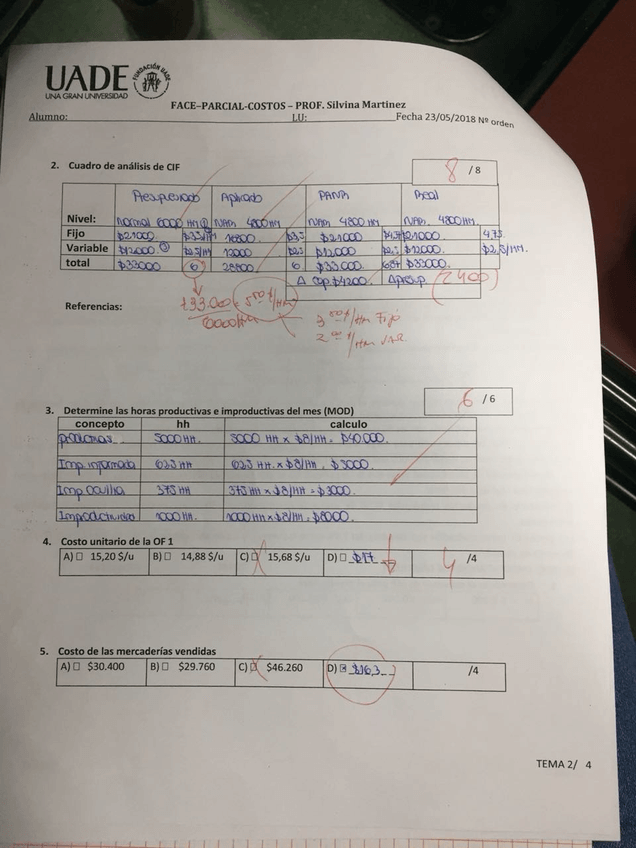 UADE
UNA GRAN UNIVERSIDAD
FUNDACIÓN UADE
FACE–PARCIAL–COSTOS – PROF. Silvina Martinez
Alumno: LU: Fecha 23/05/2018 Nº orden
2. Cuadro de análisis de CIF 8 / 8
Presupuestado Aplicado PANR Real
Nivel: Normal 6000 HM NAR. 4800 HM NAR 4800 HM NAR. 4800 HM.
Fijo $21000 $3,5/HM 16800 $3,5 $21000 $21000 4,75
Variable $12000 $2,5/HM 12000 $2,5 $12000 $2,5 $12000. $2,5/HM.
total $33000 6 28800 6 $33000 $33000
Δ Cap $4200 Δ presup (2400)
Referencias: 33.000 6000HM = 5,50 $/HM
3,50 $/HM Fijo
2,00 $/HM VAR
3. Determine las horas productivas e improductivas del mes (MOD) 6 / 6
concepto hh calculo
productivas 5000 HH. 5000 HH x $8/HH = $40.000.
Imp. informada 625 HH 625 HH. x $8/HH = $5000
Imp Oculta 375 HH 375 HH x $8/HH = $3000
Improductividad 1000 HH. 1000 HH x $8/HH = $8000.
4. Costo unitario de la OF 1
A) □ 15,20 $/u B) □ 14,88 $/u C) □ 15,68 $/u D) □ $17 4 /4
5. Costo de las mercaderías vendidas
A) □ $30.400 B) □ $29.760 C) □ $46.260 D) □ $16,3 /4
TEMA 2/ 4